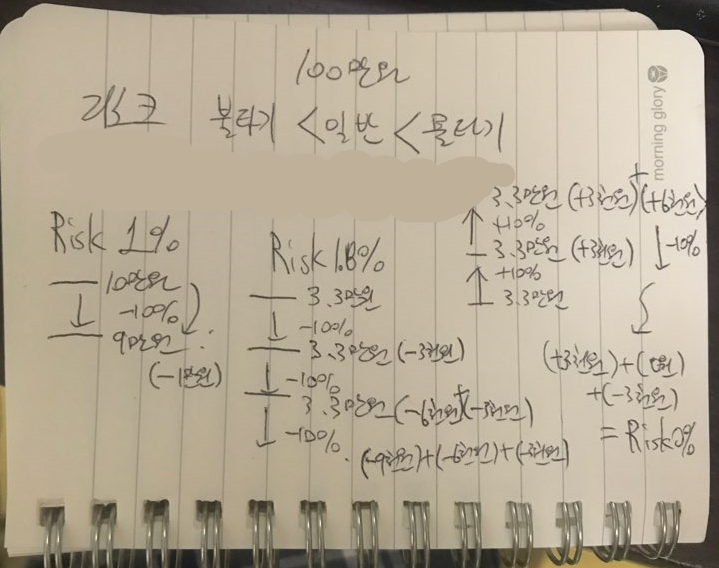 100만원
리스크 불타기 < 일반 < 물타기
Risk 1%
10만원
↓ -10%
9만원
(-1만원)
Risk 1.8%
3.3만원
↓ -10%
3.3만원 (-3천원)
↓ -10%
3.3만원 (-6천원)+(-3천원)
↓ -10%
(-9천원)+(-6천원)+(-3천원)
3.3만원 (+3천원)+(+6천원)
↑ +10%
3.3만원 (+3천원)
↑ +10%
3.3만원
↓ -10%
(+3천원)+(0원)
+(-3천원)
= Risk 0%
morning glory